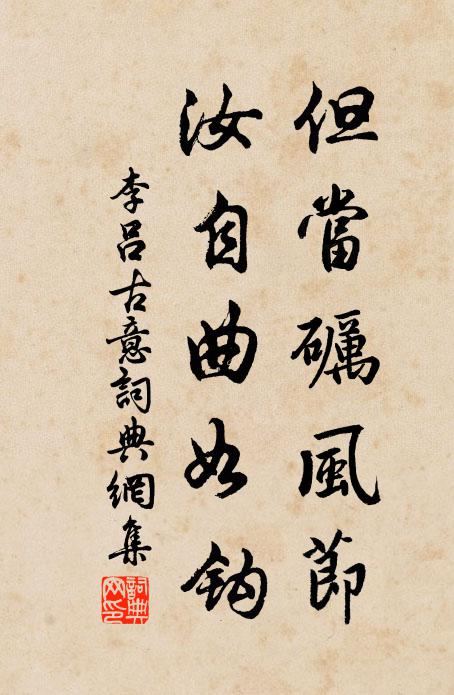 但當礪風節
汝自曲如鈎
李呂古意詞典網集
詞典網印